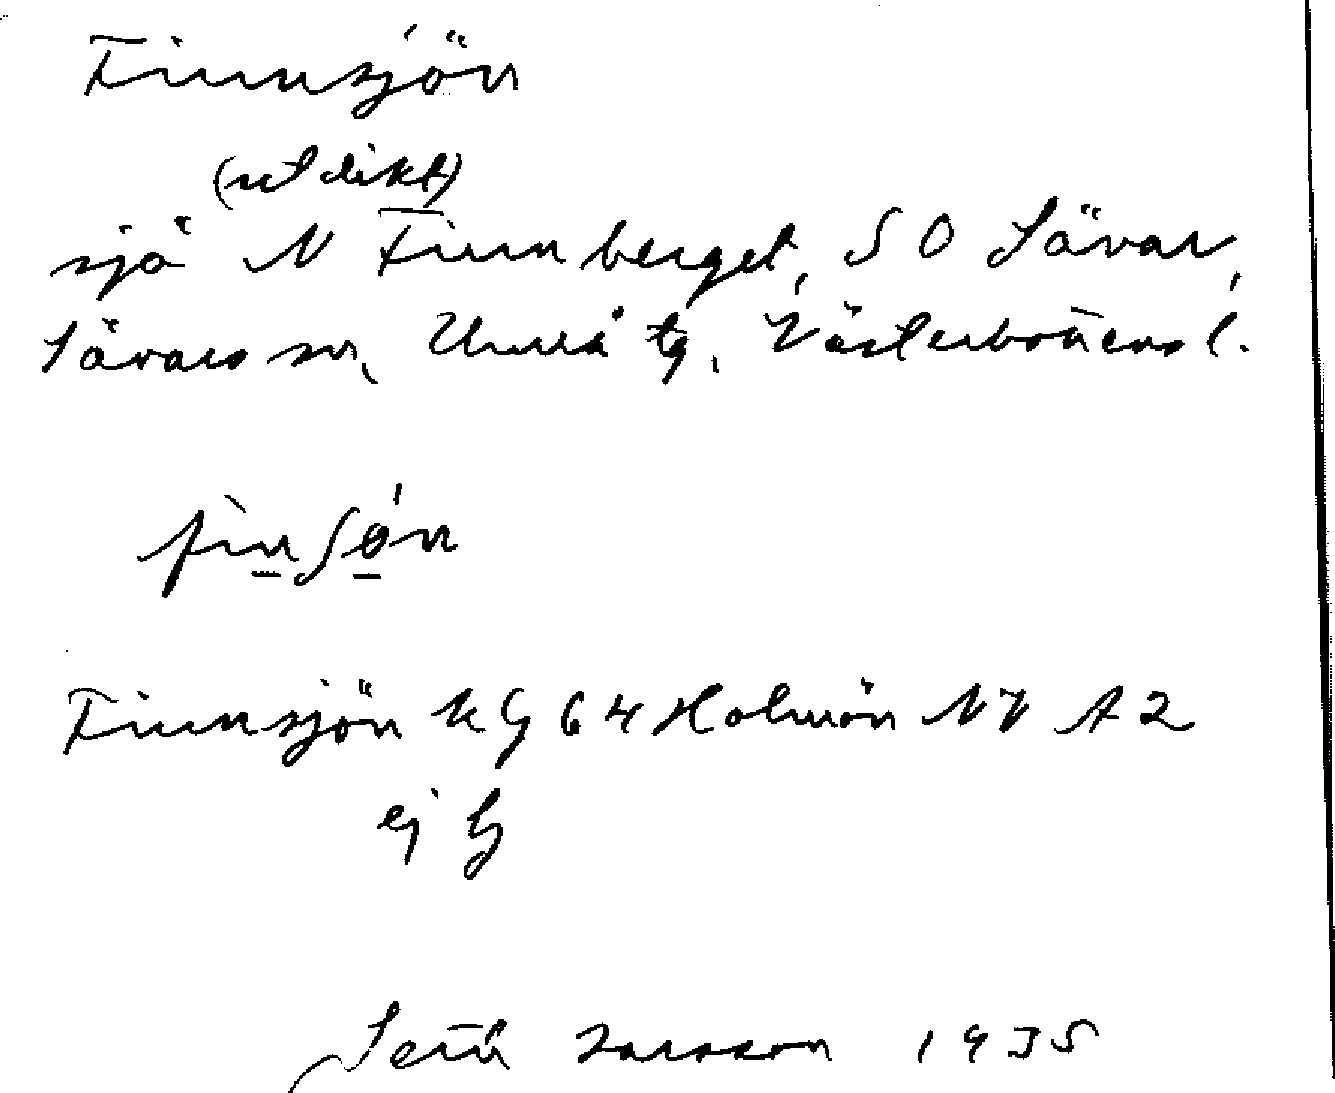 Finnsjön
(utdikt)
sjö N Finnberget, SO Sävar,
Sävars sn, Umeå tg, Västerbottens l.
fìnʃǿn
Finnsjön kg 64 Holmön NV A2
ej G
Seth Larsson 1935